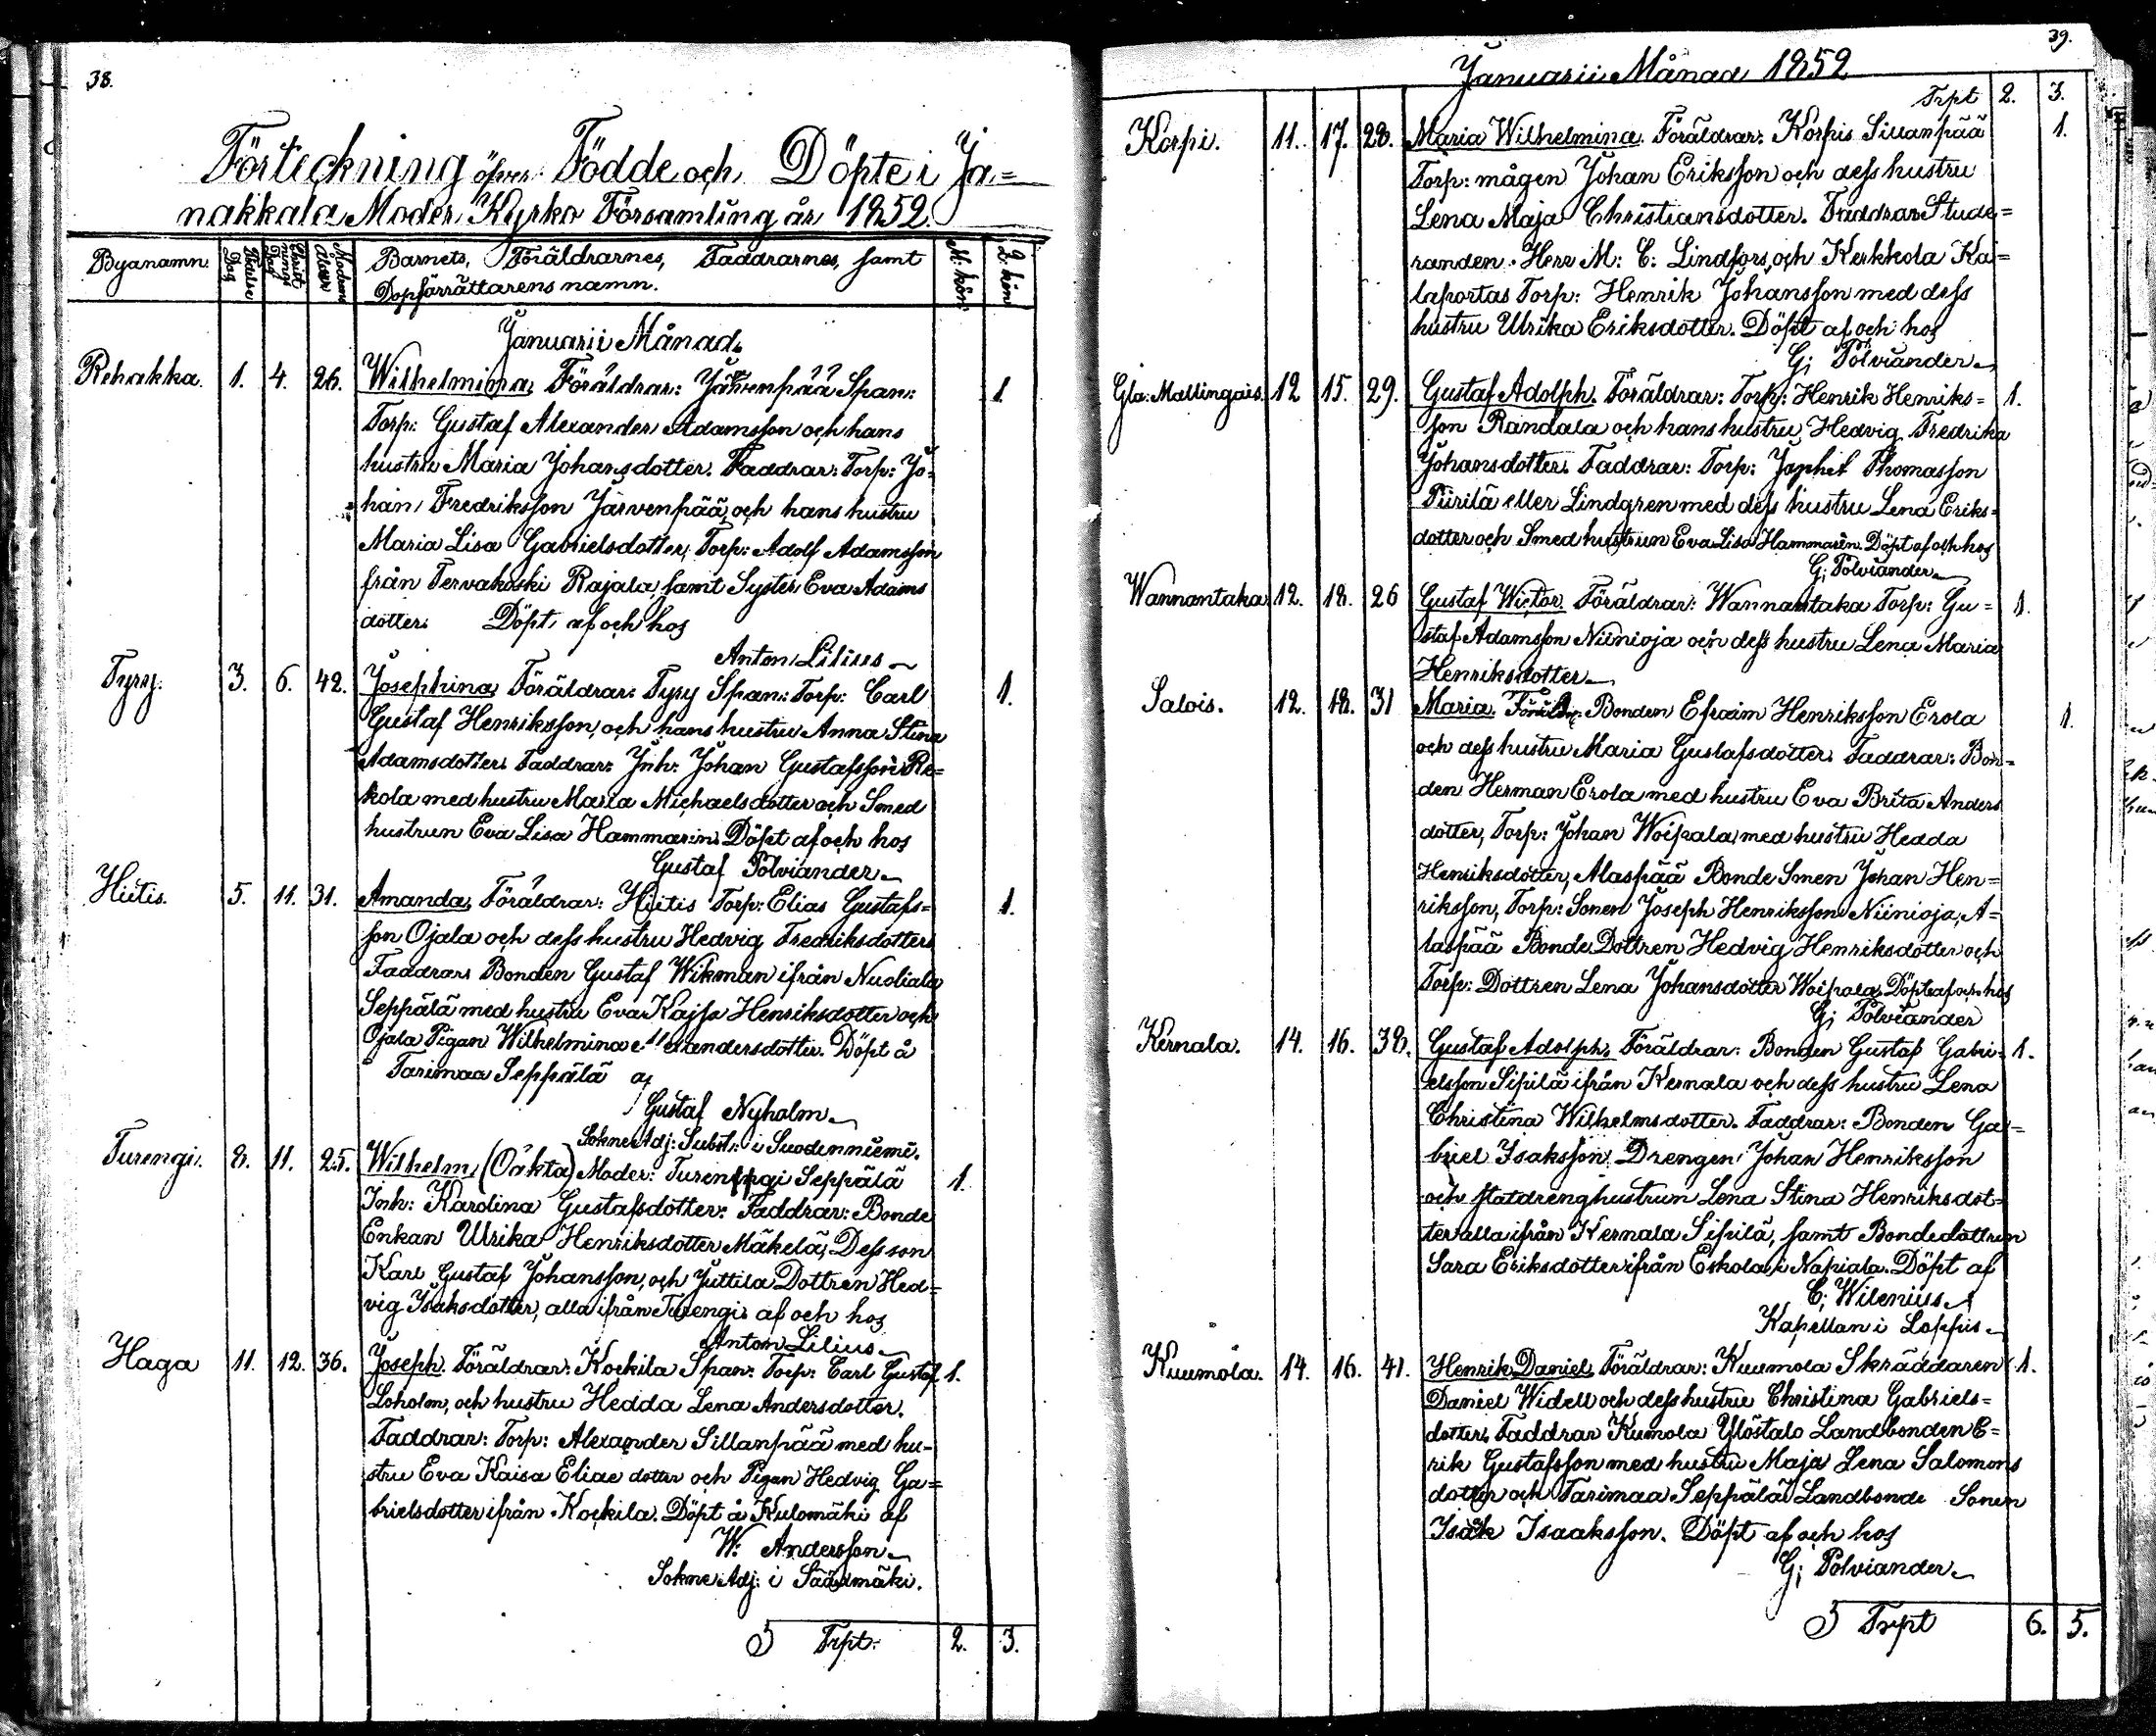 38.
Förteckning öfver Födde och Döpte i Ja=
nakkala Moder Kyrko Församling år 1852.
Byanamn.
Födelse Dag
Christnings Dag
Modrens Ålder
Barnets, Föräldrarnes, Faddrarnes, samt
Dopförrättarens namn.
M: kön
Q: kön
Januarii Månad.
Rehakka. 1. 4. 26. Wilhelmina, Föräldrar: Järvenpää Span: 1.
Torp: Gustaf Alexander Adamsson och hans
hustru Maria Johansdotter. Faddrar: Torp: Jo=
han Fredriksson Järvenpää, och hans hustru
Maria Lisa Gabrielsdotter, Torp: Adolf Adamsson
från Tervakoski Rajala, samt Syster Eva Adams
dotter. Döpt af och hos
Anton Lilius
Tyry. 3. 6. 42. Josephina, Föräldrar: Tyry Span: Torp: Carl 1.
Gustaf Henriksson, och hans hustru Anna Stina
Adamsdotter. Faddrar: Inh: Johan Gustafsson Re=
kola med hustru Maria Michaelsdotter och Smed
hustrun Eva Lisa Hammarin. Döpt af och hos
Gustaf Polviander
Hiitis. 5. 11. 31. Amanda, Föräldrar: Hiitis Torp: Elias Gustafs= 1.
son Ojala och dess hustru Hedvig Fredriksdotter.
Faddrar Bonden Gustaf Wikman ifrån Nuoliala
Seppälä med hustru Eva Kajsa Henriksdotter och
Ojala Pigan Wilhelmina Alexandersdotter. Döpt å
Tarimaa Seppälä af
Gustaf Nyholm
Sokne Adj: Subst: i Suodenniemi.
Turengi. 8. 11. 25. Wilhelm, (Oäkta) Moder: Turengi Seppälä 1.
Inh: Karolina Gustafsdotter. Faddrar: Bonde
Enkan Ulrika Henriksdotter Mäkelä, Dess son
Karl Gustaf Johansson, och Juttila Dottren Hed=
vig Isaksdotter, alla ifrån Turengi. af och hos
Anton Lilius
Haga 11. 12. 36. Joseph. Föräldrar: Kockila Span: Torp: Carl Gustaf 1.
Loholm, och hustru Hedda Lena Andersdotter.
Faddrar: Torp: Alexander Sillanpää med hu=
stru Eva Kaisa Eliae dotter och Pigan Hedvig Ga=
brielsdotter ifrån Kockila. Döpt å Kulomäki af
W: Andersson
Sokne Adj: i Sääxmäki.
Trpt: 2. 3.
39.
Januarii Månad 1852
Trpt 2. 3.
Korpi. 11. 17. 28. Maria Wilhelmina. Föräldrar: Korpis Sillanpää 1.
Torp: mågen Johan Eriksson och dess hustru
Lena Maja Christiansdotter. Faddrar Stude=
randen Herr M: C: Lindfors, och Kerkkola Ka=
laportas Torp: Henrik Johansson med dess
hustru Ulrika Eriksdotter. Döpt af och hos
G; Polviander
Gla: Mallingais. 12 15. 29. Gustaf Adolph. Föräldrar: Torp: Henrik Henriks= 1.
son Randala och hans hustru Hedvig Fredrika
Johansdotter. Faddrar: Torp: Japhet Thomasson
Piirilä eller Lindgren med dess hustru Lena Eriks=
dotter och Smed hustrun Eva Lisa Hammarén. Döpt af och hos
G; Polviander
Wannantaka 12. 18. 26 Gustaf Wictor. Föräldrar: Wannantaka Torp: Gu= 1.
staf Adamsson Niinioja och dess hustru Lena Maria
Henriksdotter
Salois. 12. 18. 31 Maria. Bonden Efraim Henriksson Erola 1.
och dess hustru Maria Gustafsdotter. Faddrar: Bon=
den Herman Erola med hustru Eva Brita Anders
dotter, Torp: Johan Woipala, med hustru Hedda
Henriksdotter, Alaspää Bonde Sonen Johan Hen=
riksson, Torp: Sonen Joseph Henriksson Niinioja, A=
laspää Bonde Dottren Hedvig Henriksdotter och
Torp: Dottren Lena Johansdotter Woipala. Döpt af och hos
G; Polviander
Kernala. 14. 16. 38. Gustaf Adolph. Föräldrar: Bonden Gustaf Gabri= 1.
elsson Sipilä ifrån Kernala och dess hustru Lena
Christina Wilhelmsdotter. Faddrar: Bonden Ga=
briel Isaksson, Drengen Johan Henriksson
och statdrenghustrun Lena Stina Henriksdot=
ter alla ifrån Kernala Sipilä, samt Bondedottren
Sara Eriksdotter ifrån Eskola i Napiala. Döpt af
C; Wilenius
Kapellan i Loppis
Kuumola. 14. 16. 41. Henrik Daniel, Föräldrar: Kuumola Skräddaren 1.
Daniel Widell och dess hustru Christina Gabriels=
dotter. Faddrar Kumola Ylöstalo Landbonden E=
rik Gustafsson med hustru Maja Lena Salomons
dotter och Tarimaa Seppälä Landbonde Sonen
Isak Isaaksson. Döpt af och hos
G; Polviander
Trpt 6. 5.